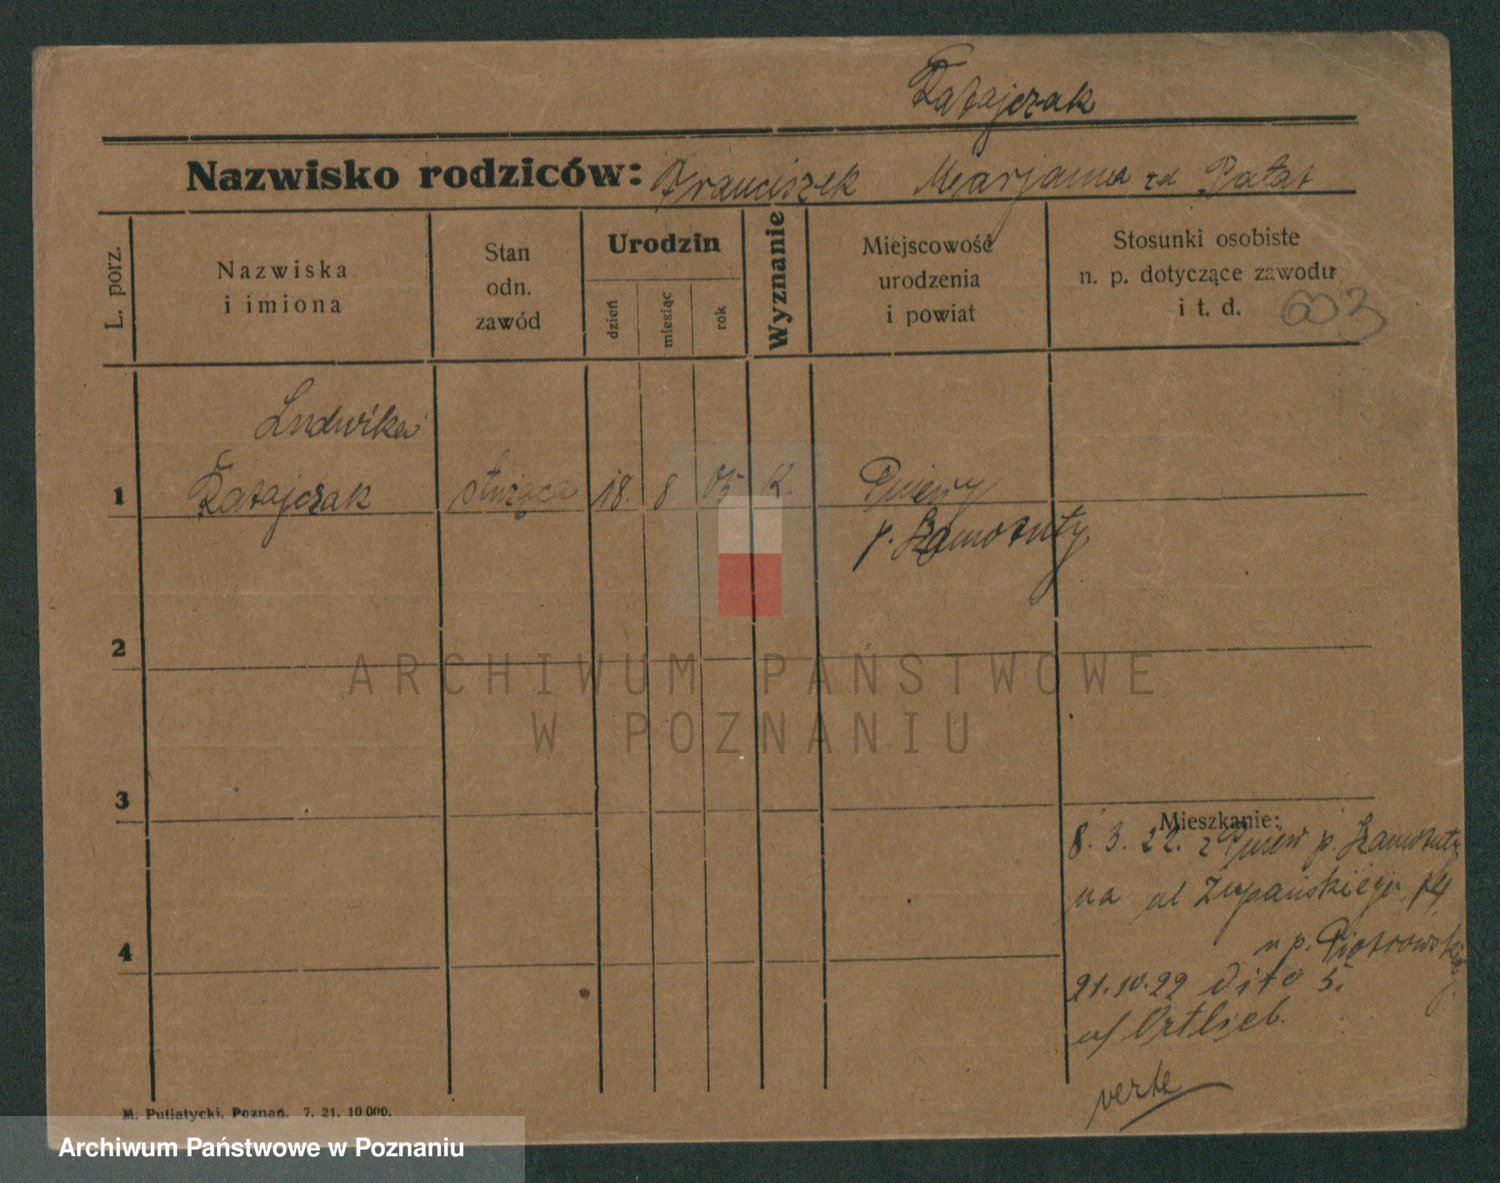 Ratajczak
Nazwisko rodziców: Franciszek Marjanna zd Pałat
L. porz.
Nazwiska
i imiona
Stan
odn.
zawód
Urodzin
dzień
miesiąc
rok
Wyznanie
Miejscowość
urodzenia
i powiat
Stosunki osobiste
n. p. dotyczące zawodu
i t. d.
603
Ludwika
1 Ratajczak służąca 18. 8 05 K. Pniewy
p. Szamotuły
2
3
4
Mieszkanie:
8. 3. 22. z Pniew p. Szamotuły
na ul Żupańskiego 14
u p. Piotrowski
21.10.22 dito 5.
u/ Ortlieb.
verte
M. Putiatycki, Poznań. 7. 21. 10 000.
ARCHIWUM PAŃSTWOWE
W POZNANIU
Archiwum Państwowe w Poznaniu